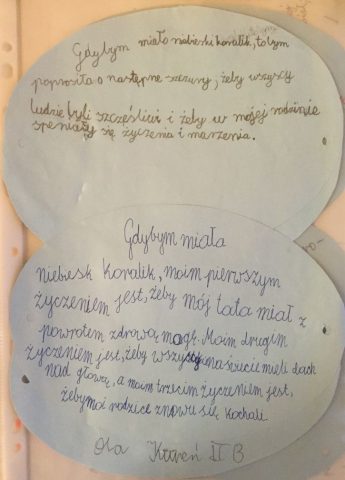 Gdybym miało niebieski koralik, to bym
poprosiła o następne rzeczy, żeby wszyscy
ludzie byli szczęśliwi i żeby w mojej rodzinie
speniały się życzenia i marzenia.
Gdybym miała
niebiesk koralik, moim pierwszym
życzeniem jest, żeby mój tata miał z
powrotem zdrową nogę. Moim drugim
życzeniem jest, żeby wszyscy na świecie mieli dach
nad głową, a moim trzecim życzeniem jest,
żeby moi rodzice znowu się kochali
Ola II B